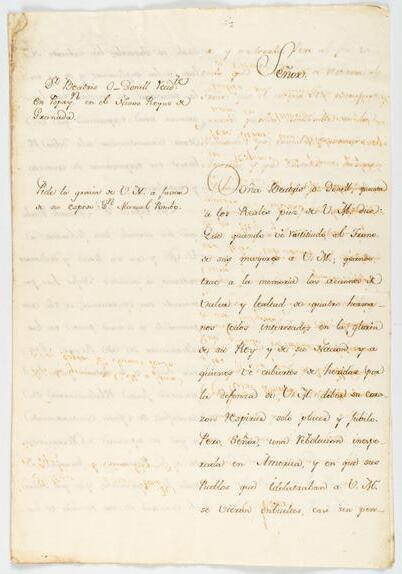 Señor.
Dª Beatris O-Donill Vecⁿᵃ
en Popayⁿ en el Nuevo Reyno de
Granada.
Pide la gracia de V. M. a favor
de su esposo Dⁿ Manuel Pombo.
Doña Beatris o-Donill, puesta
a los Reales pies de V. M. dice:
Que quando ve restituido el Trono
de sus mayores a V. M., quando
trae a la memoria las acciones de
valor y lealtad de quatro herma-
nos todos interesados en la gloria
de su Rey y de su Nacion, y a
quienes ve cubiertos de heridas por
la defensa de V. M. debia su cora-
zon respirar solo placer y jubilo.
Pero, Señor, una rebolucion inespe-
rada en America, y en que sus
Pueblos que idolatraban a V. M.
se vieron enbueltos, casi sin pen-